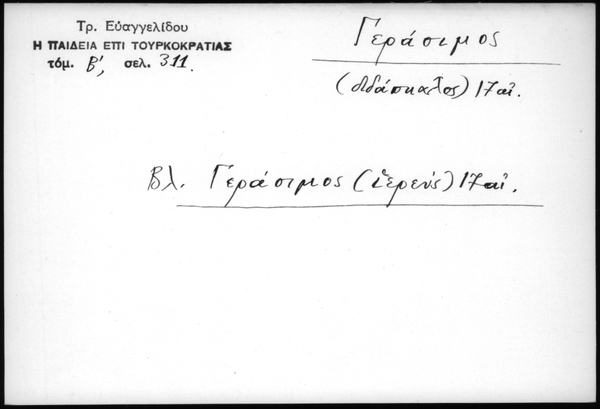 Τρ. Εὐαγγελίδου
Η ΠΑΙΔΕΙΑ ΕΠΙ ΤΟΥΡΚΟΚΡΑΤΙΑΣ
τόμ. Β', σελ. 311.
Γεράσιμος
(διδάσκαλος) 17 αἰ.
Βλ. Γεράσιμος (ἱερεύς) 17 αἰ.